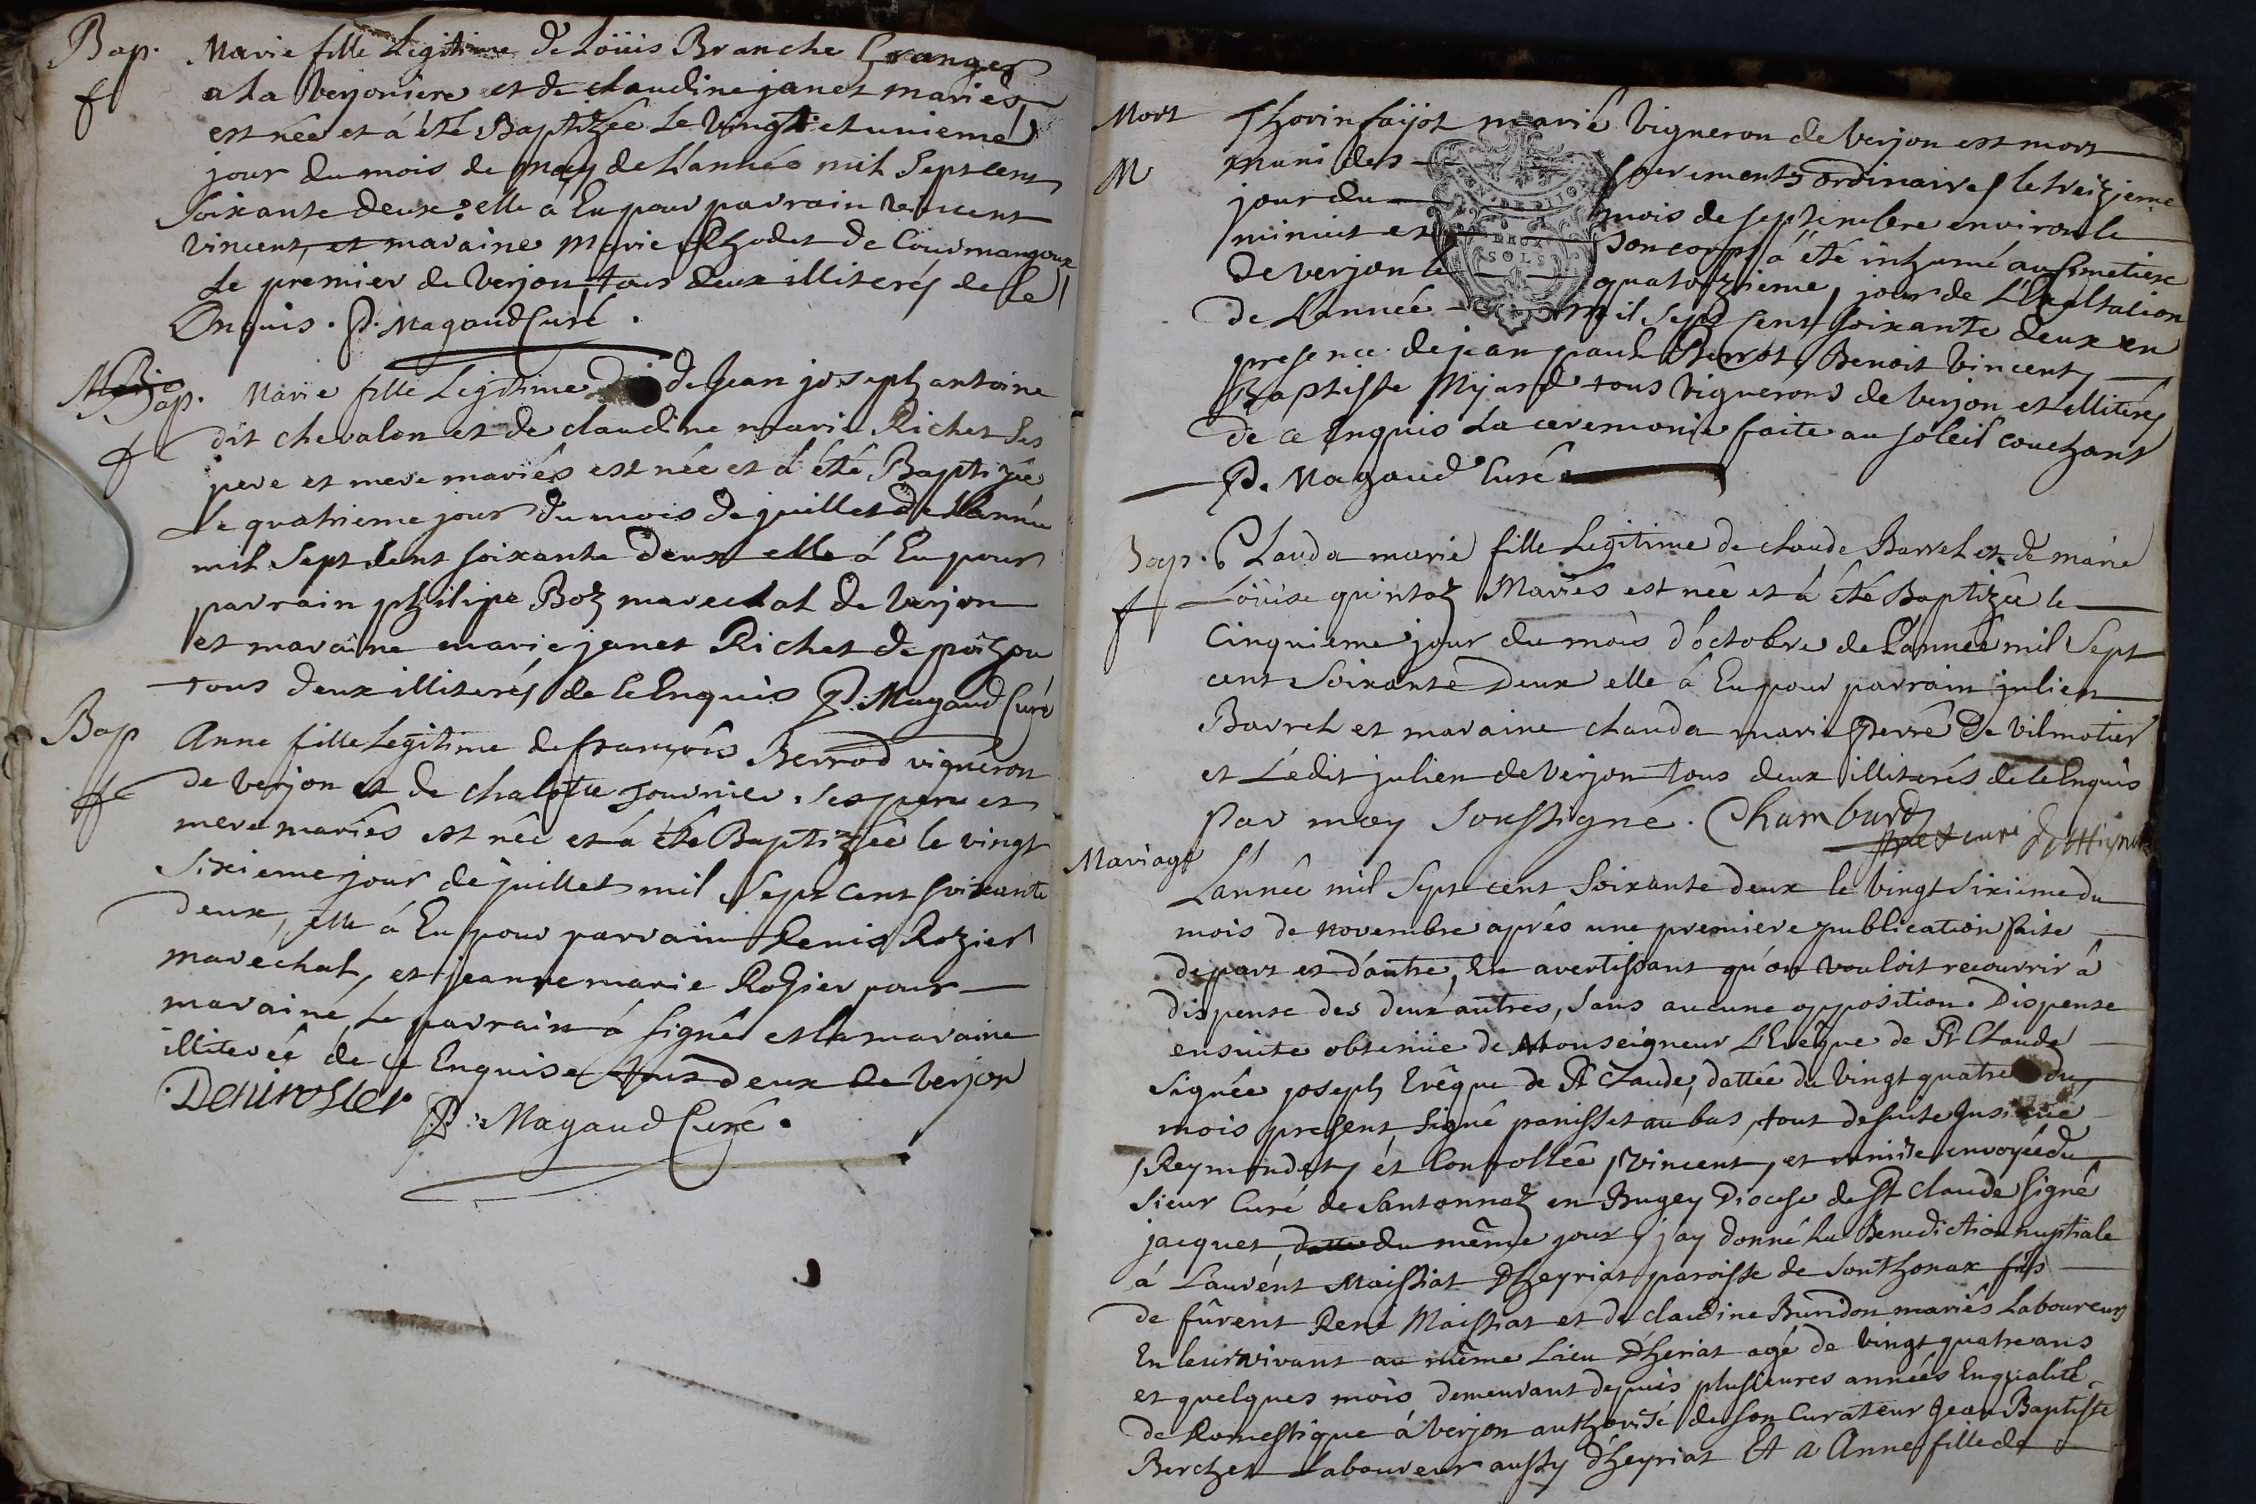 Bap. Marie fille Legitime de Loüis Branche Granger
f a La Verjoniere et de claudine janet mariés
est née et á été Baptizée Le Vingt et unieme
jour du mois de may de L'année mil Sept cent
soixante deux elle a Eu pour parrain vincent
vincent, et maraine marie Rhodet de Courmangoux
Le premier de Verjon tous deux illiterés de ce
Enquis. P. Magaud Curé.
Bap. Marie fille Legitime de Jean joseph antoine
f dit chevalon et de claudine marie Richet ses
pere et mere mariés est née et á été Baptizée
Le quatrieme jour du mois de juillet de L'année
mil Sept Cent soixante deux elle á Eu pour
parrain philipe Boz marechal de Verjon
et maraine marie janet Richet de
tous deux illiterés de ce Enquis P. Magaud Curé
Bap Anne fille Legitime de françois Berrod vigneron
f de Verjon et de chalotte fournier ses pere et
mere mariés est née et á été Baptizée le vingt
Sixieme jour de juillet mil Sept cent soixante
deux, elle á Eu pour parrain Denis Rozier
maréchal, et jeanne marie Rozier pour
maraine, Le parrain á signé et la maraine
illiterée de ce Enquise tous deux de Verjon
P. Magaud Curé.
Mort Thorin faijot marié Vigneron de Verjon est mort
M muni des sacrements ordinaires le treizieme
jour du mois de septembre environ le
minuit et son corps á été inhumé au Simetiere
de Verjon le quatorzieme, jour de L'Exaltation
de L'année mil sept Cent soixante deux en
presence de jean paul Perrot, Benoit Vincent,
Baptiste Mijard tous Vignerons de Verjon et illiterés
de ce Enquis La ceremonie faite au soleil couchant
P. Magaud Curé
Bap. Clauda marie fille Legitime de claude Barrel et de marie
f Loüise quintaz Mariés est née et á été Baptizée le
Cinquieme jour du mois d'octobre de L'année mil Sept
cent Soixante Deux elle á Eu pour parrain julien
Barrel et maraine clauda marie Perré de Vilmotier
et Ledit julien de Verjon tous deux illiterés de ce Enquis
Par moy Soussigné. Chambard
Mariage L'année mil Sept cent Soixante deux le Vingt Sixieme du
mois de novembre aprés une premiere publication faite
de part et d'autre, En avertissant qu'on vouloit recourrir á
dispense des deux autres, sans aucune opposition. Dispense
ensuite obtenüe de Monseigneur L'Evêque de St Claude
Signée joseph Evêque de St Claude, dattée du Vingt quatre du
mois present, signé panisset au bas, tout de suite Insinué
Reymondet, et Controllée, Vincent, et remise envoyée du
Sieur Curé de Santonnaz en Bugey Diocese de St Claude signé
jacquet, du même jour, j'ay donné La Benediction nuptiale
á Laurent Maissiat d'heyriat paroisse de Sonthonax fils
de fûrent René Maissiat et de claudine Buridon mariés Laboureurs
En leur vivant au même Lieu d'heriat agé de Vingt quatre ans
et quelques mois demeurant depuis plusieures années En qualité
de Domestique á Verjon authorisé de son Curateur Jean Baptiste
Berchet Laboureur aussy d'heyriat Et a Anne fille de